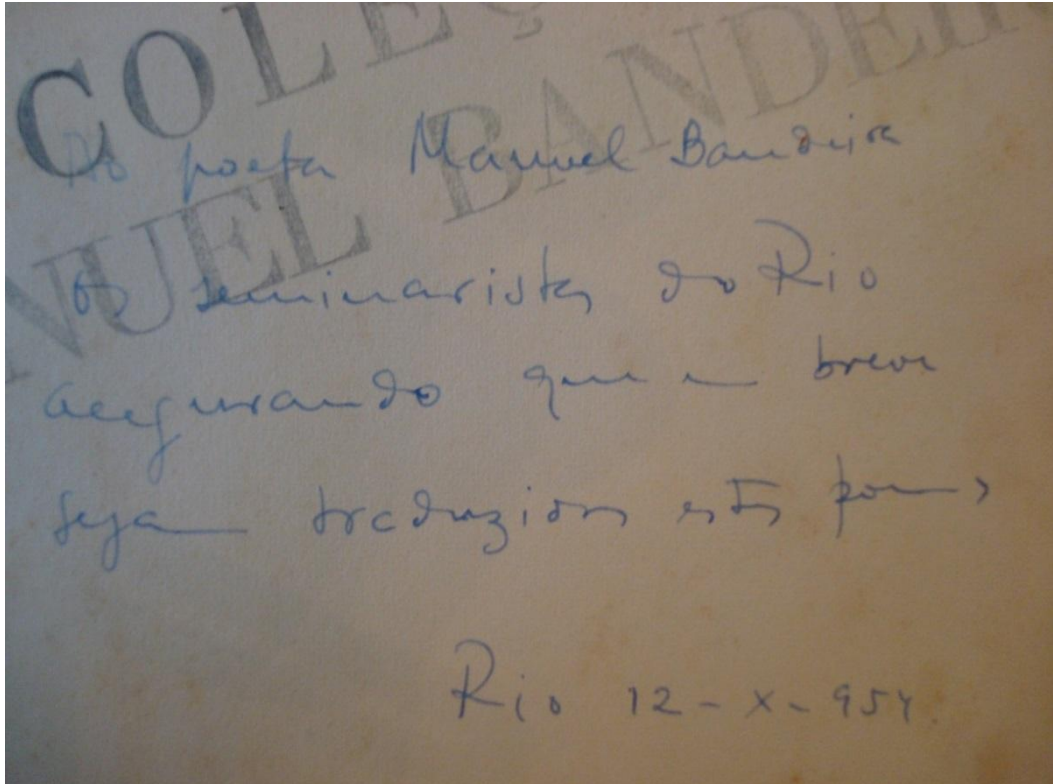 COLEÇ
MANUEL BANDEIR
Ao poeta Manuel Bandeira
os seminaristas do Rio
assegurando que em breve
sejam traduzidos estes poemas
Rio 12-X-954.